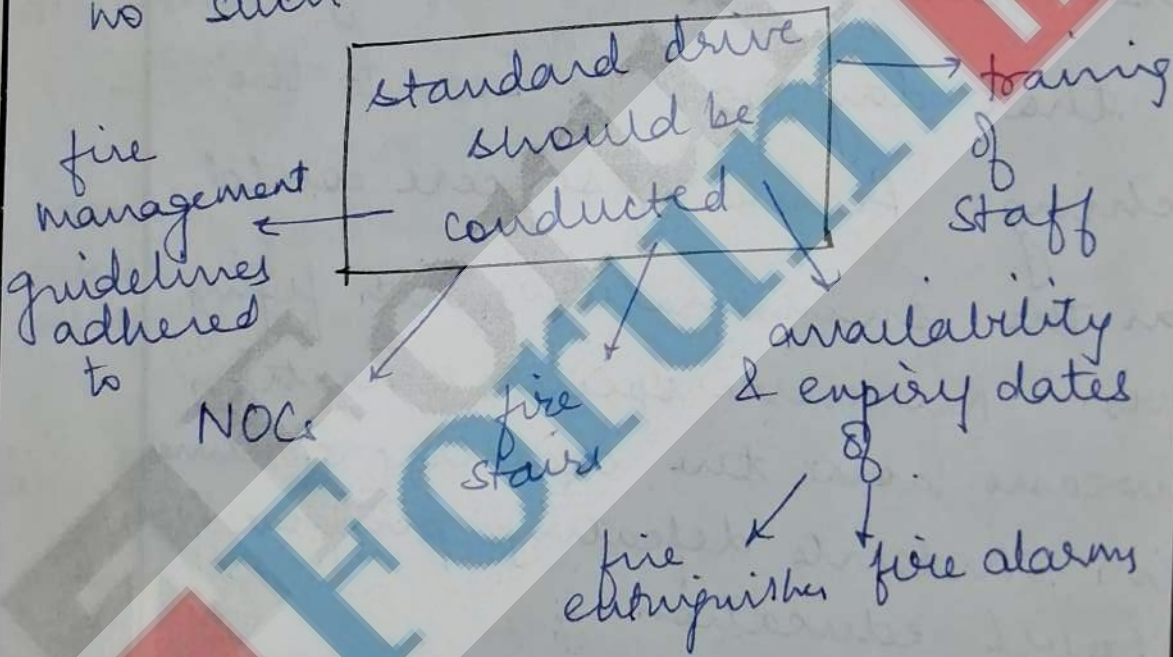 no such
standard drive
should be
conducted
training
of
staff
fire
management
guidelines
adhered
to
NOCs
fire
stairs
availability
& expiry dates
of
fire
extinguisher
fire alarms
Forum